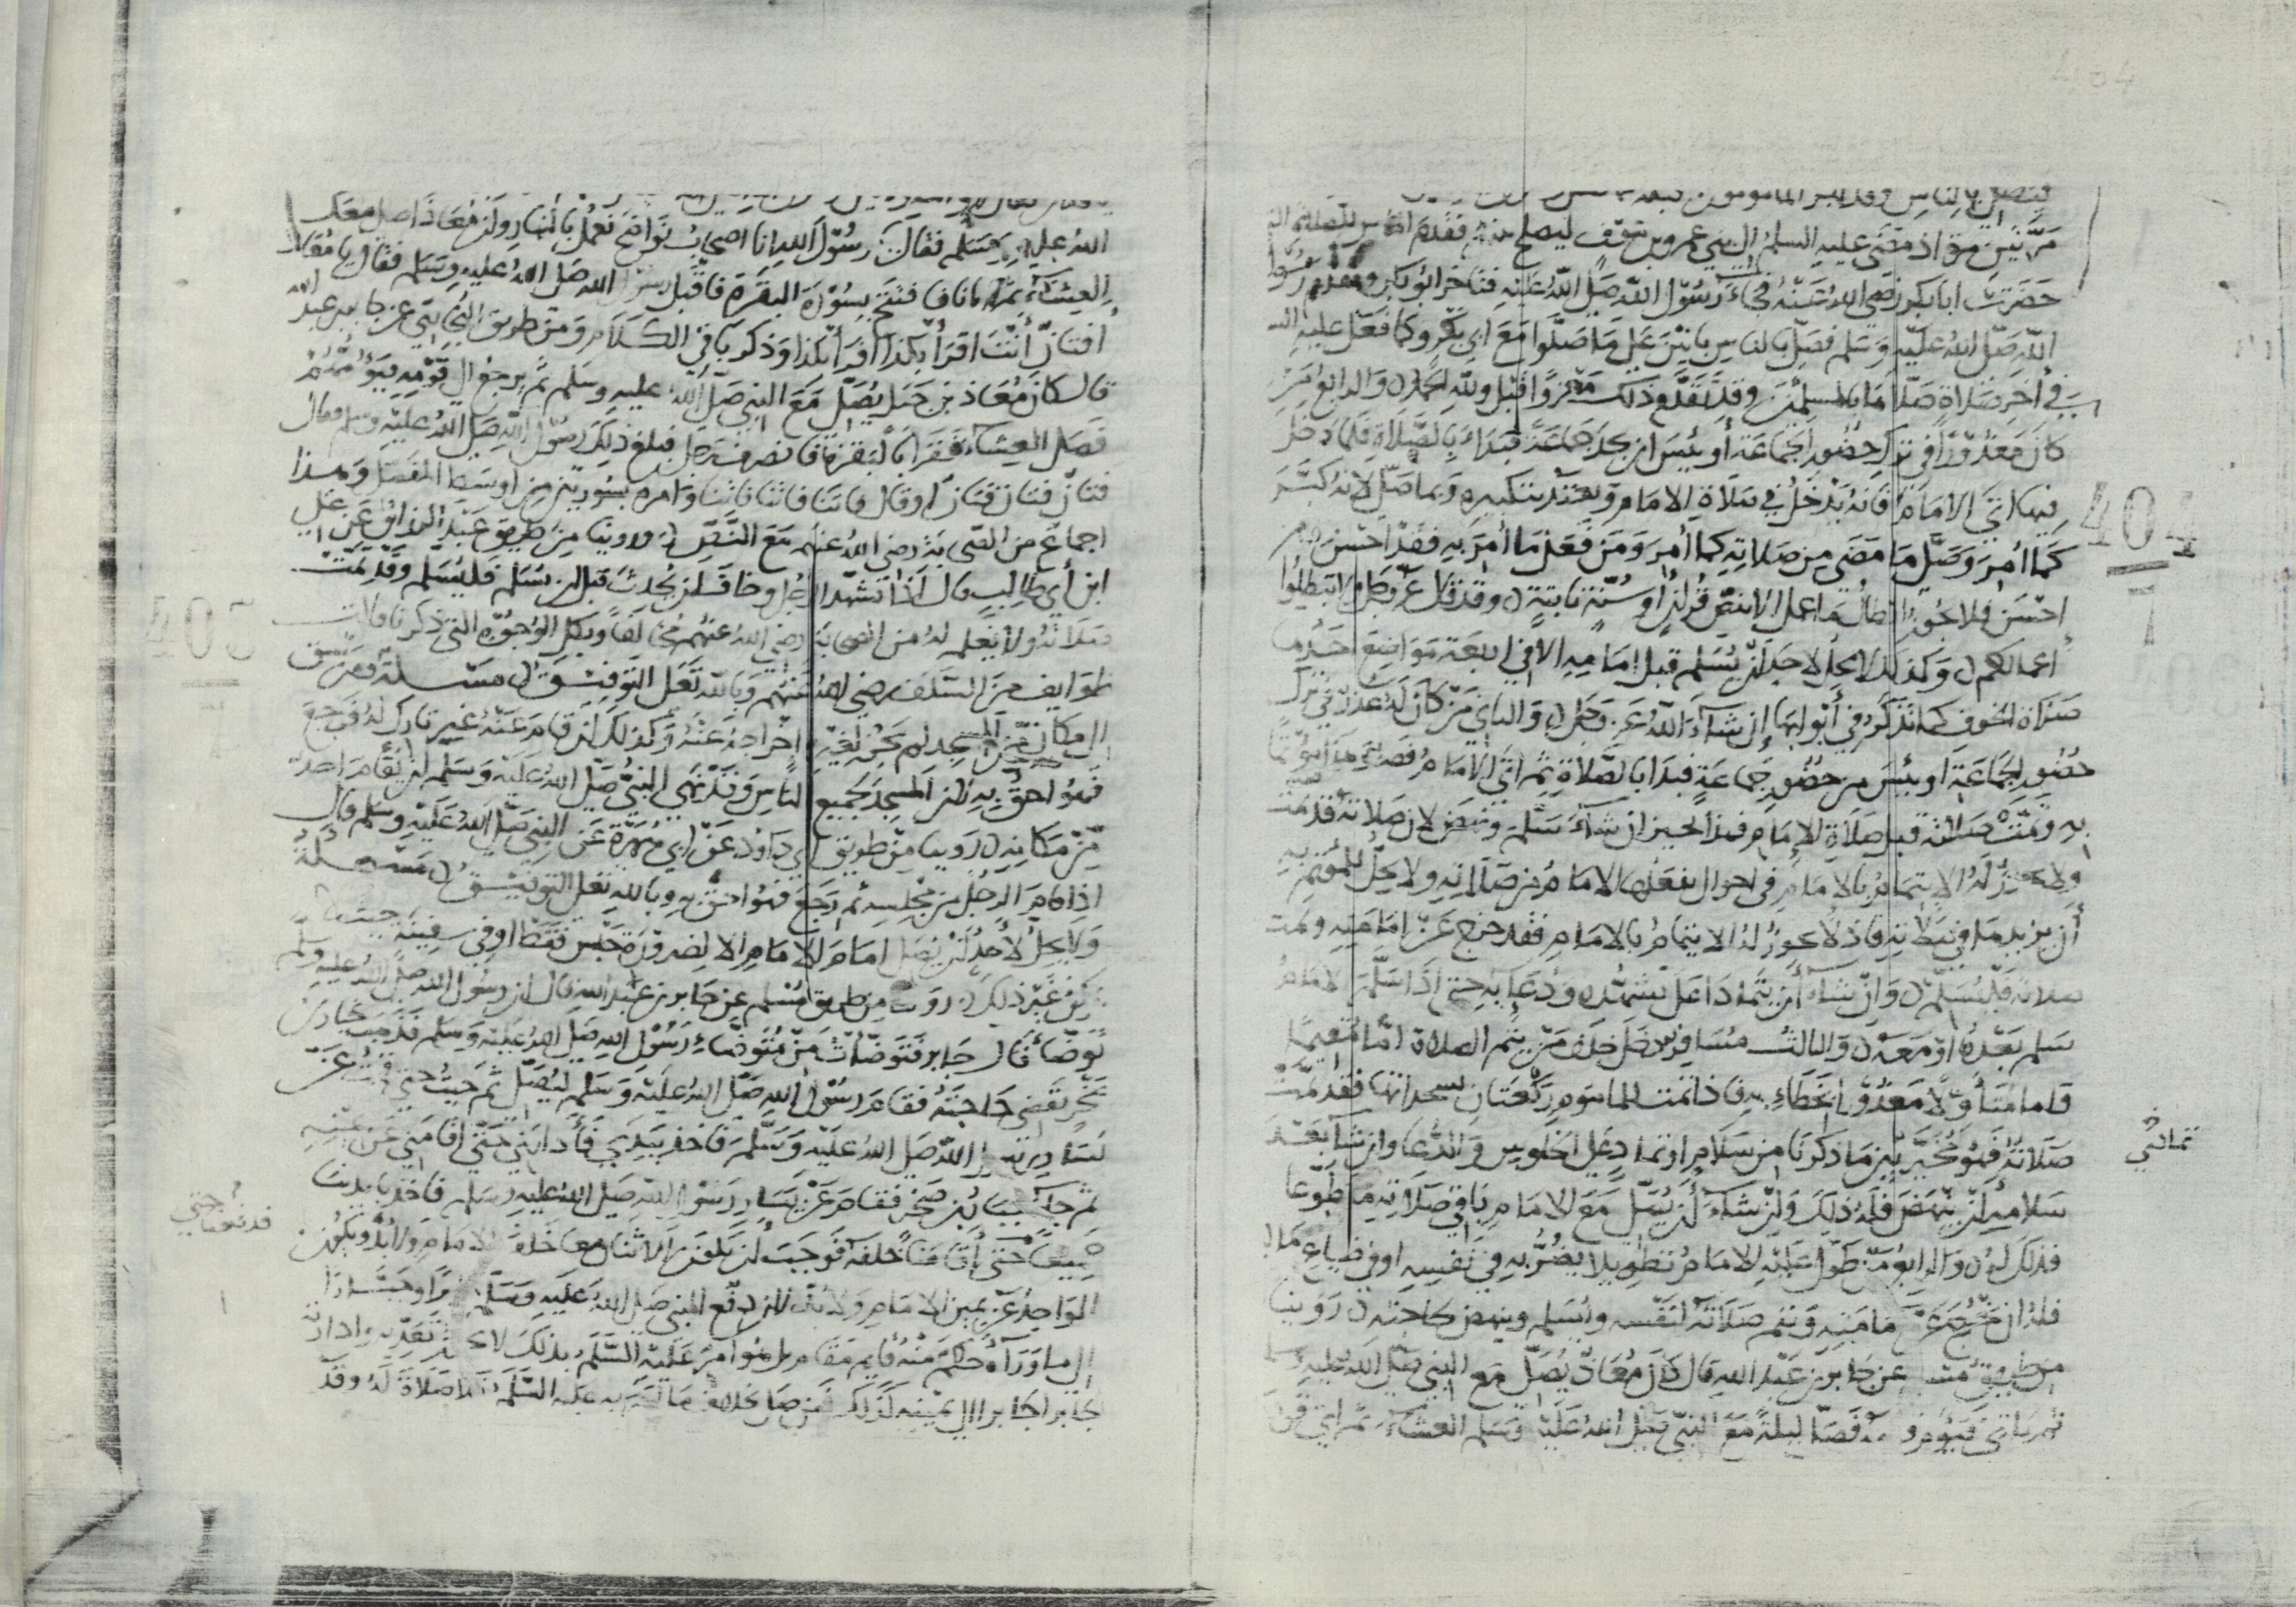 فيصلي بالناس وقد كبر المأمومون
مرتين مرة اذ مضى عليه السلم الى بني عمرو بن عوف ليصلح بينهم فقدم الناس للصلاة التي
حضرت ابا بكر رضي الله عنه فجاء رسول الله صلى الله عليه فتأخر ابو بكر وتقدم رسول
الله صلى الله عليه وسلم فصلى بالناس بانين على ما صلوا مع ابي بكر وكما فعل عليه السلم
في أخر صلاة صلاها بالمسلمين وقد تقدم ذلك مقررا قبل ولله الحمد والرابع من
كان معذورا في ترك حضور الجماعة أو يئس ان يجد جماعة فبدأ بالصلاة فلما دخل
فيها اتى الامام فانه يدخل في صلاة الامام ويعتد بتكبيره وبما صلى لانه كبر
كما امر وصلى ما مضى من صلاته كما أمر ومن فعل ما أمر به فقد احسن ومن
احسن فلا يجوز ابطال ما عمل الا بنص قرآن او سنة ثابتة وقد قال عز وجل ولا تبطلوا
اعمالكم وكذلك لا يحل لاحد أن يسلم قبل امامه الا في اربعة مواضع احدها
صلاة الخوف كما نذكر في أبوابها إن شاء الله عز وجل والثاني من كان له عذر في ترك
حضور الجماعة او يئس من حضور جماعة فبدا بالصلاة ثم اتى الامام فصار هذا مؤتما
به وتمت صلاته قبل صلاة الامام فهذا مخير ان شاء سلم ونهض لان صلاته قد تمت
ولا يجوز له الايتمام بالامام في احوال يفعلها الامام من صلاته ولا يحل للمؤتم به
أن يزيد ها في صلاته فاذ لا يجوز له الايتمام بالامام فقد خرج عن امامته وتمت
صلاته فليسلم وان شاء أن يتمادا على تشهده ودعايه حتى اذا سلم الامام
سلم بعده او معه والثالث مسافر دخل خلف من يتم الصلاة اما مقيما
واما متأولا معذورا بخطاءه فاذا تمت للماموم ركعتان بسجداتها فقد تمت
صلاته فهو مخير بين ما ذكرنا من سلام او تماد على الجلوس والدعا وان شا بعد
سلامه أن ينهض فله ذلك وان شاء أن يصلي مع الامام باقي صلاته متطوعا
فذلك له والرابع من طول عليه الامام تطويلا يضر به في نفسه او في ضياع ماله
فله ان يخرج عن امامته ويتم صلاته لنفسه ويسلم وينهض لحاجته روينا
من طريق مسلم عن جابر بن عبد الله قال كان معاذ يصلي مع النبي صلى الله عليه وسلم
ثم ياتي فيؤم قومه فصلى ليلة مع النبي صلى الله عليه وسلم العشاء ثم اتى قو
تمافي
404
1
الله عليه وسلم فقال يا رسول الله انا اصحاب نواضح نعمل بالنهار وان معاذا صلى معك
العشاء ثم اتانا فافتتح بسورة البقرة فاقبل رسول الله صلى الله عليه وسلم فقال يا معاذ
أفتان أنت اقرأ بكذا اقرأ بكذا وذكر باقي الكلام ومن طريق البخاري عن جابر بن عبد الله
قال كان معاذ بن جبل يصلي مع النبي صلى الله عليه وسلم ثم يرجع الى قومه فيؤمهم
فصلى العشاء فقرأ بالبقرة فانصرف رجل فبلغ ذلك رسول الله صلى الله عليه وسلم فقال
فتان فتان فتان او قال فاتنا فاتنا فاتنا وامره بسورتين من اوسط المفصل وهذا
اجماع من الصحابة رضي الله عنهم مع النص وروينا من طريق عبد الرزاق عن علي
ابن أبي طالب قال اذا تشهد الرجل وخاف أن يحدث قبل ان يسلم فليسلم وقد تمت
صلاته ولا يعلم له من الصحابة رضي الله عنهم مخالفا وبكل الوجوه التي ذكرنا قالت
طوايف من السلف رضي الله عنهم وبالله تعلى التوفيق مسئلة ومن سبق
الى مكان من المسجد لم يجز لغيره اخراجه عنه وكذلك لو قام عنه غير تارك له فرجع
فهو احق به لان المسجد لجميع الناس وقد نهى النبي صلى الله عليه وسلم ان يقام احد
من مكانه روينا من طريق ابي داود عن ابي هريرة عن النبي صلى الله عليه وسلم قال
اذا قام الرجل من مجلسه ثم رجع فهو احق به وبالله تعلى التوفيق مسئلة
ولا يحل لأحد أن يصلي امام الامام الا لضرورة حبس فقط او في سفينة حيث لا
يمكن غير ذلك روينا من طريق مسلم عن جابر بن عبد الله قال ان رسول الله صلى الله عليه وسلم
توضأ قال جابر فتوضأت من متوضاء رسول الله صلى الله عليه وسلم فذهب جبار بن
صخر يقضي حاجته فقام رسول الله صلى الله عليه وسلم ليصلي ثم جيت حتى قمت عن
يسار رسول الله صلى الله عليه وسلم فاخذ بيدي فأدارني حتى اقامني عن يمينه
ثم جاء جبار بن صخر فقام عن يسار رسول الله صلى الله عليه وسلم فاخذ بايدينا
جميعا حتى أقامنا خلفه فوجب أن يكون الاثنان معا خلف الامام ولابد ويكون
الواحد عن يمين الامام ولابد لان دفع النبي صلى الله عليه وسلم جابرا وجبارا
الى ما وراءه حكم منه فايم مقام اوامر عليه السلم بذلك لا يجوز تعديه وادارته
جابرا الى يمينه كذلك فمن صلى بخلاف ما امر به عليه السلم فلا صلاة له وقد
فدفعناحتى
405